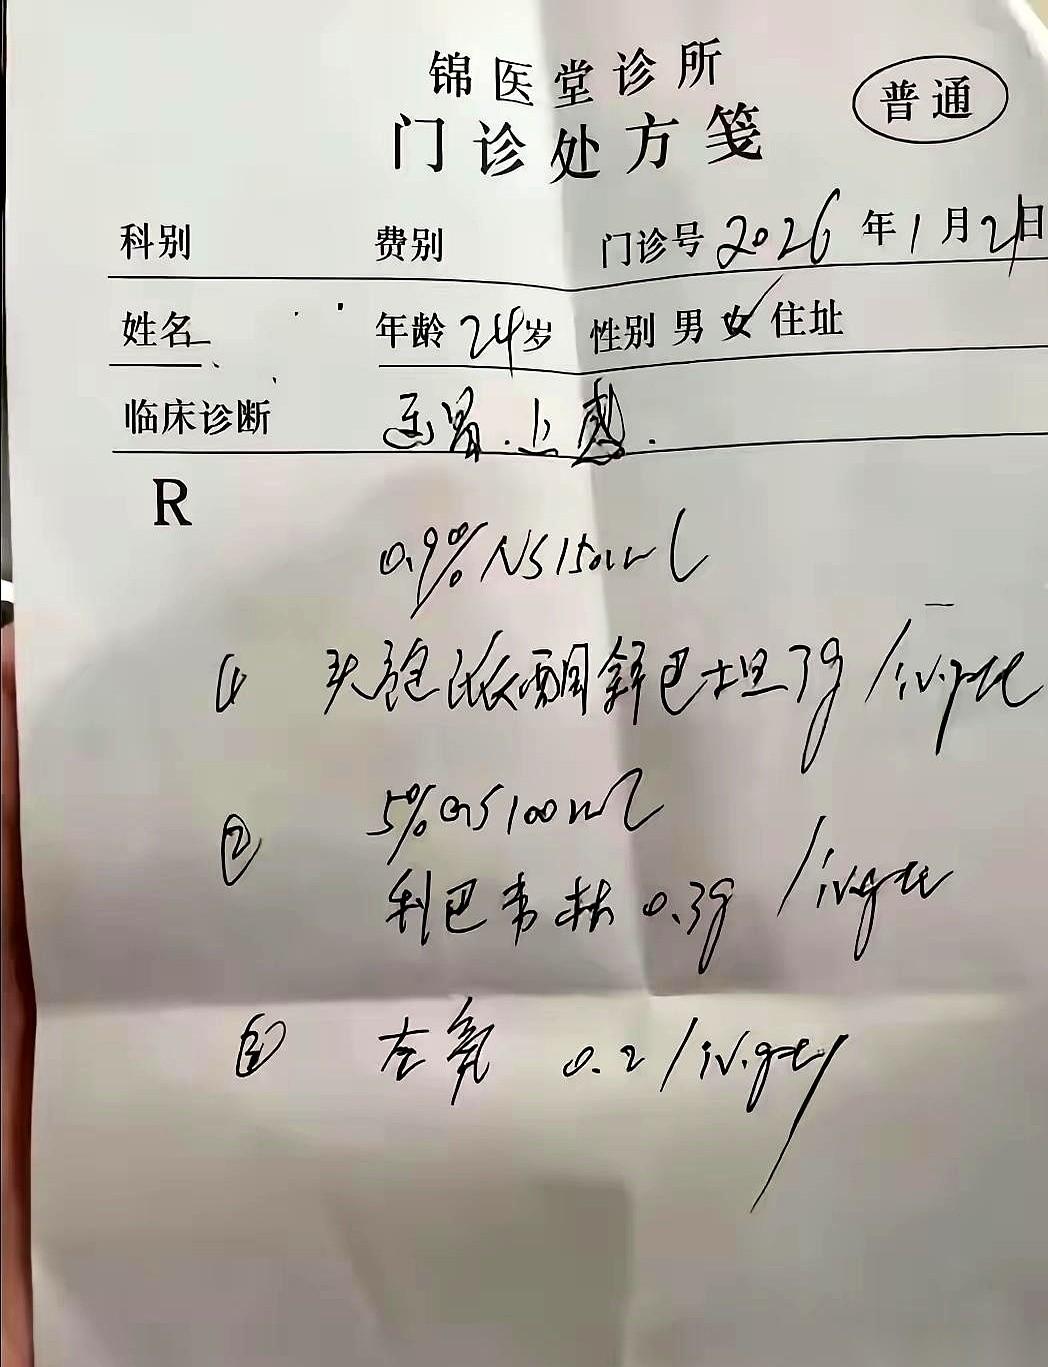 锦医堂诊所
普通
门诊处方笺
科别 费别 门诊号 2026年1月21日
姓名 年龄 24岁 性别 男 女 住址
临床诊断 上感.
R
0.9% NS 150ml
① 头孢哌酮舒巴坦 3g / iv.gtt
5% GS 100ml
②
利巴韦林 0.3g / iv.gtt
③ 左氧 0.2 / iv.gtt